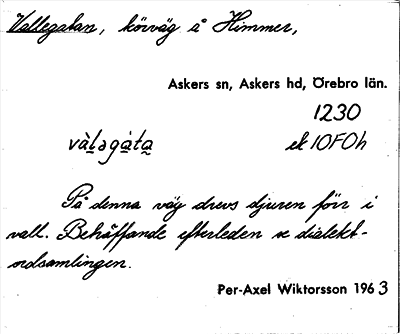 Vallegatan, körväg å Himmer,
Askers sn, Askers hd, Örebro län.
1230
vàl̲əgàta̲ ek 10F0h
På denna väg drevs djuren förr i
vall. Beträffande efterleden se dialekt-
ordsamlingen.
Per-Axel Wiktorsson 1963